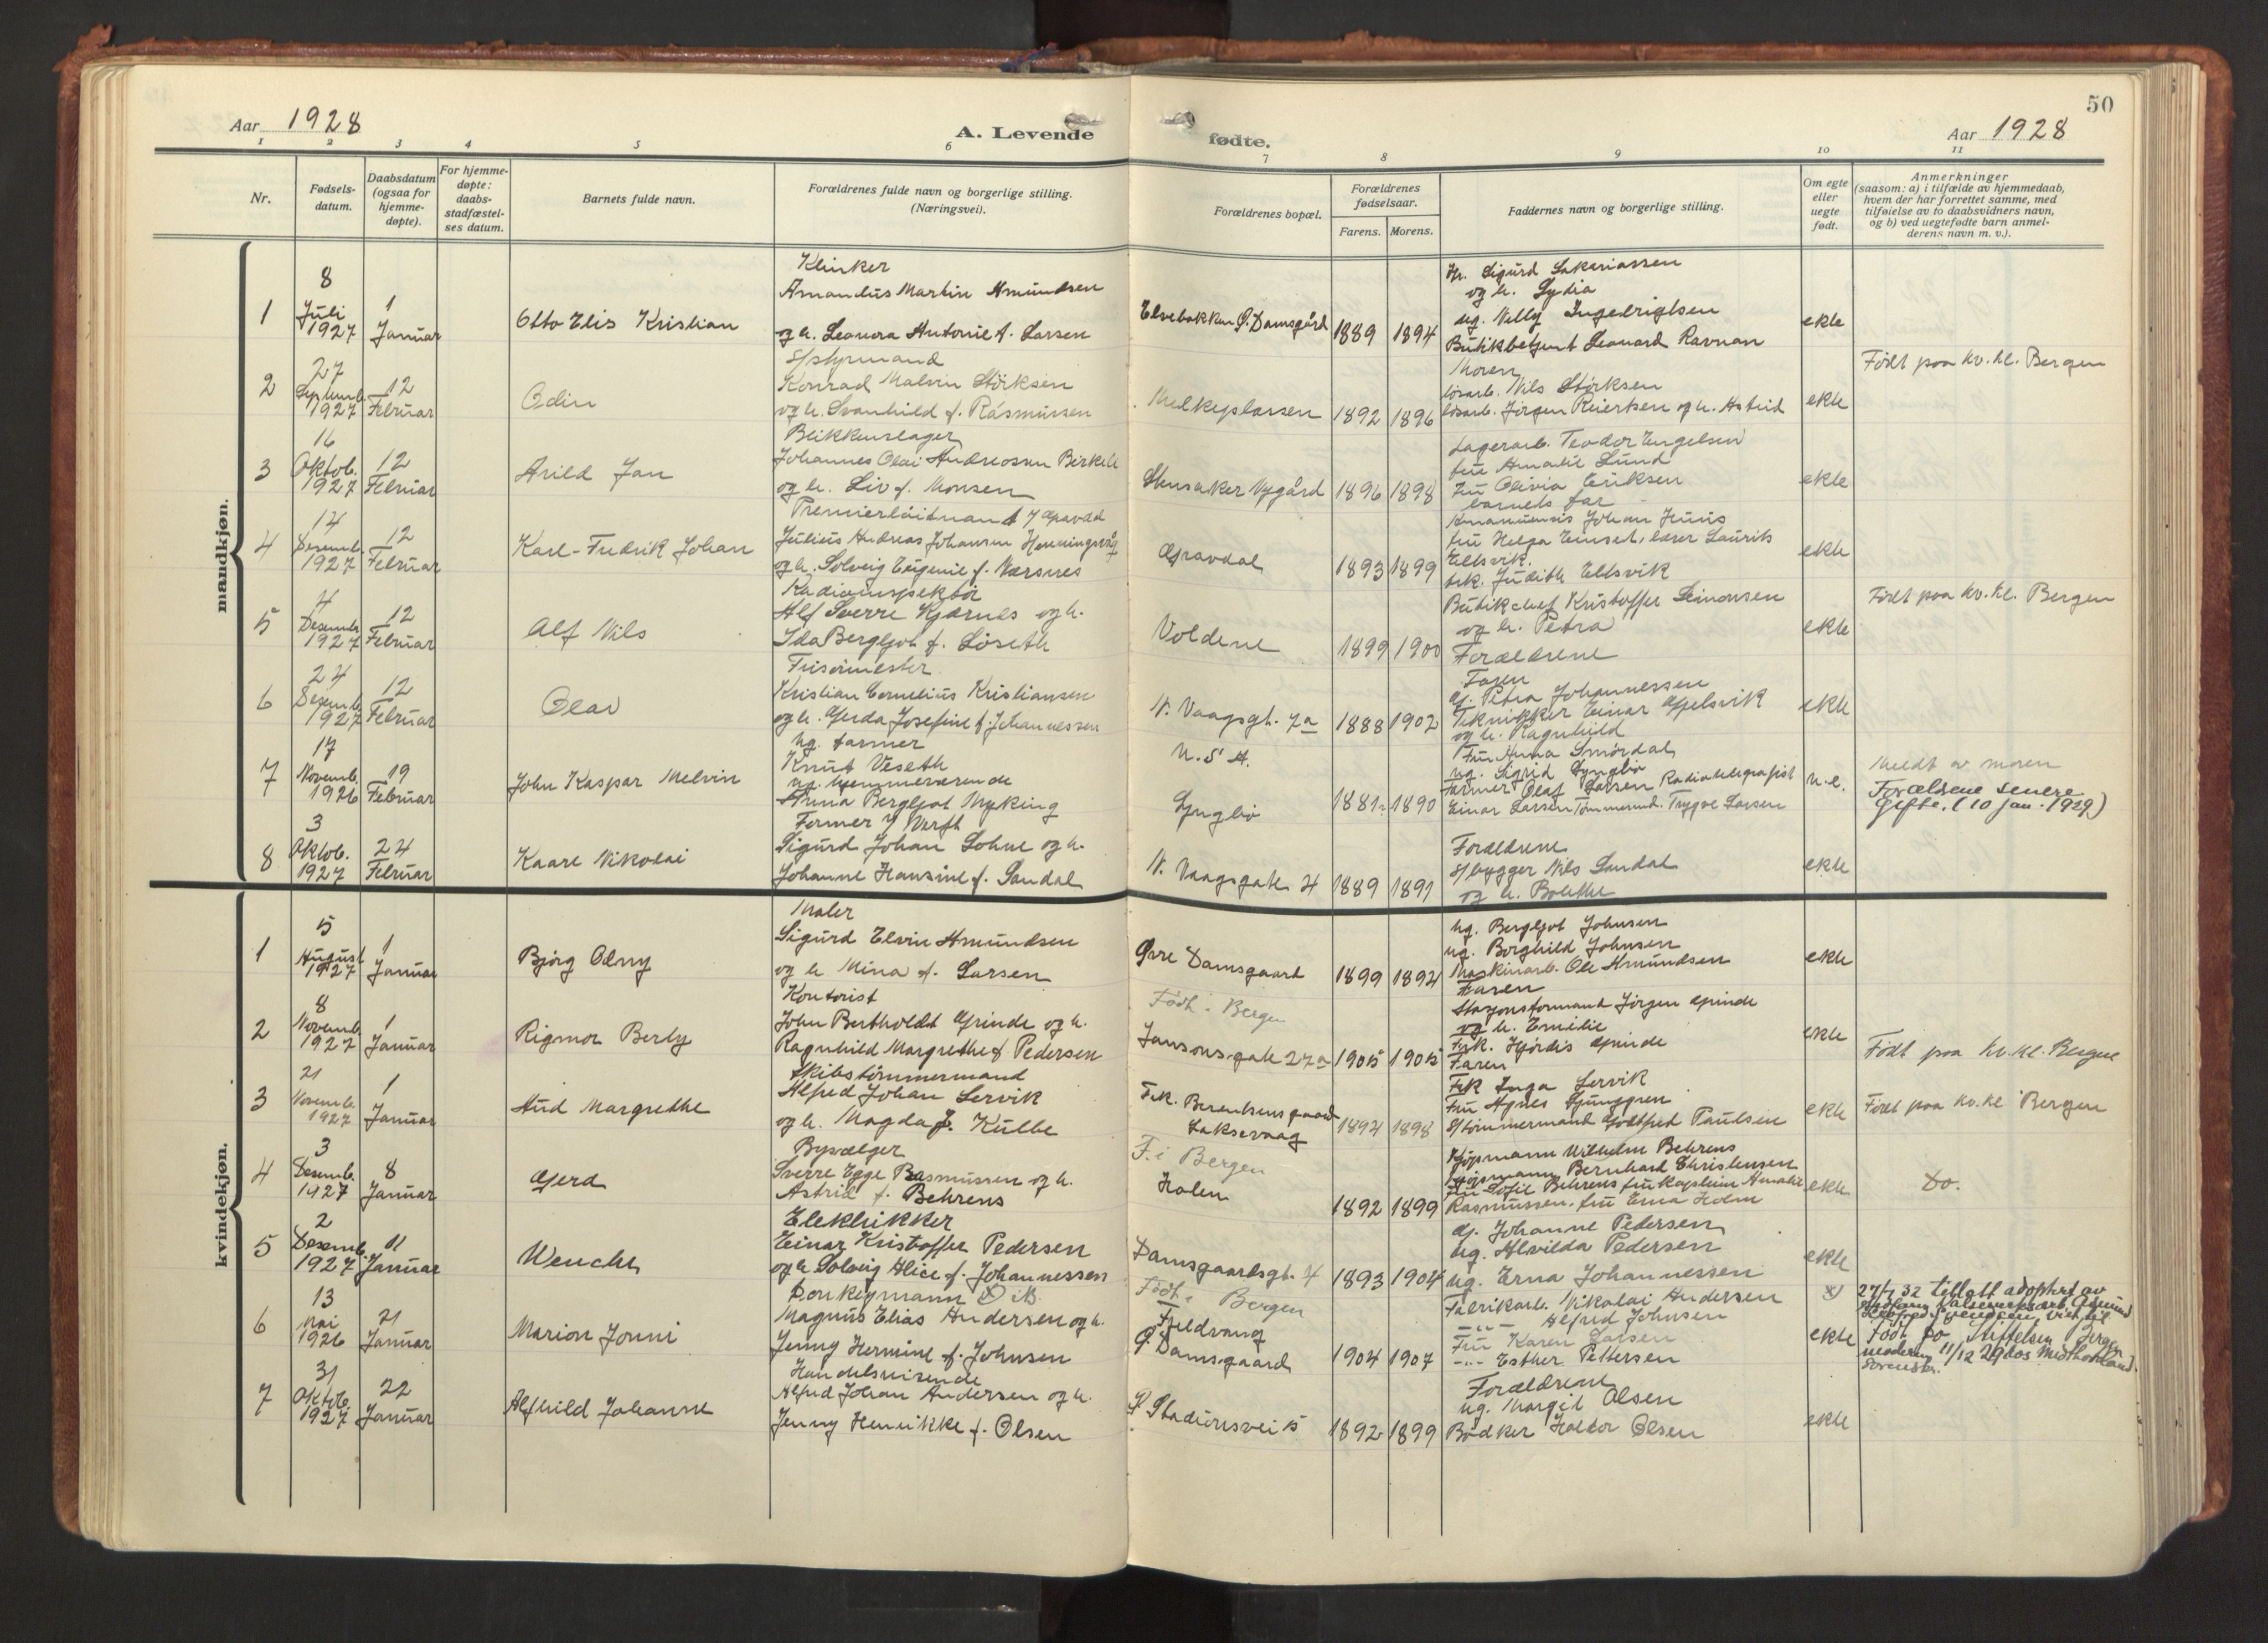 50
Aar 1928
A. Levende
fødte.
Aar 1928
1 2 3 4 5 6 7 8 9 10 11
Nr.
Fødsels-
datum.
Daabsdatum
(ogsaa for
hjemme-
døpte).
For hjemme-
døpte:
daabs-
stadfæstel-
ses datum.
Barnets fulde navn.
Forældrenes fulde navn og borgerlige stilling.
(Næringsvei).
Forældrenes bopæl.
Forældrenes
fødselsaar.
Farens. Morens.
Faddernes navn og borgerlige stilling.
Om egte
eller
uegte
født.
Anmerkninger
(saasom: a) i tilfælde av hjemmedaab,
hvem der har forrettet samme, med
tilføielse av to daabsvidners navn,
og b) ved uegtefødte barn anmel-
derens navn m. v.).
mandkjøn.
1
8
Juli
1927
1
Januar
Otto Elis Kristian
Klinker
Amandus Martin Amundsen
og h. Leonora Antonie f. Larsen
Elvebakken Ø. Damsgård
1889 1894
Hr. Sigurd Sakariassen
og h. Lydia
ug. Nelly Ingebrigtsen
Butikbetjent Leonard Ravnan
ekte
2
27
Septemb.
1927
12
Februar
Odin
S/styrmand
Konrad Malvin Störksen
og h. Svanhild f. Rasmussen
Melkeplassen
1892 1896
Moren
lösarb. Nils Störksen
lösarb. Jörgen Reiertsen og h. Astrid
ekte
Födt paa kv.kl. Bergen
3
16
Oktob.
1927
12
Februar
Arild Jan
Blikkenslager
Johannes Olai Andreassen Birkeli
og h. Liv f. Monsen
Stensaker Nygård
1896 1898
Lagerarb. Teodor Engelsen
fru Amalie Lund
Fru Olivia Eriksen
barnets far
ekte
4
14
Desemb.
1927
12
Februar
Karl-Fredrik Johan
Premierlöitnant
Julius Andreas Johansen Henningsvåg
og h. Solveig Eugenie f. Værsnes
Gravdal
1893 1899
Amanuensis Johan Huus
fru Helga Einset, lærer Laurits
Eltsvik.
frk. Judith Eltsvik
ekte
5
4
Desemb.
1927
12
Februar
Alf Nils
Radioinspektör
Alf Sverre Kjærnes og h.
Ida Bergljot f. Löseth
Voldene
1899 1900
Butikchef Kristoffer Simonsen
og h. Petra
Forældrene
ekte
Födt paa kv.kl. Bergen
6
24
Desemb.
1927
12
Februar
Olav
Frisörmester
Kristian Cornelius Kristiansen
og h. Gerda Josefine f. Johannessen
N. Vaagsgt. 7a
1888 1902
Faren
gj. Petra Johannessen
Tekniker Einar Gjelsvik
og h. Ragnhild
ekte
7
17
Novemb.
1926
19
Februar
John Kaspar Melvin
Ug. farmer
Knut Veseth
ug. hjemmeværende
Anna Bergljot Myking
U.S.A.
Lyngbö
1881 1890
Fru Anna Smördal
ug. Sigrid Lyngbö
farmer Olaf Larsen Radiotelegrafist
Einar Larsen Tömmermd. Trygve Larsen
u.e.
Meldt av moren
Forældrene senere
gifte. (10 jan. 1929)
8
3
Oktob.
1927
24
Februar
Kaare Nikolai
Former v/ Værft
Sigurd Johan Lohne og h.
Johanne Hansine f. Sandal
N. Vaagsgate 4
1889 1891
Forældrene
S/bygger Nils Sandal
og h. Bolette
ekte
kvindekjøn.
1
5
August
1927
1
Januar
Bjørg Odny
Maler
Sigurd Elvin Amundsen
og h. Mina f. Larsen
Øvre Damsgaard
1899 1892
ug. Bergljot Johnsen
ug. Borghild Johnsen
Maskinarb. Ole Amundsen
Faren
ekte
2
8
Novemb.
1927
1
Januar
Rigmor Berly
Kontorist
John Bertholdt Grinde og h.
Ragnhild Margrethe f. Pedersen
Födt i Bergen
Jansonsgate 27a
1905 1905
Stasjonsformand Jörgen Grinde
og h. Emilie
Frk. Hjördis Grinde
Faren
ekte
Födt paa kv.kl. Bergen
3
21
Novemb.
1927
1
Januar
Aud Margrethe
Skibstömmermand
Alfred Johan Lervik
og h. Magda f. Kulbe
Frk. Berentsensgaard
Laksevaag
1894 1898
Frk Inga Lervik
Fru Agnes Ljunggren
S/tömmermand Godtfred Paulsen
ekte
Födt paa kv.kl Bergen
4
3
Desemb.
1927
8
Januar
Gerd
Byvælger
Sverre Egge Rasmussen og h.
Astrid f. Behrens
F. i Bergen
Holen
1892 1899
Kjøpmann Wilhelm Behrens
Kjøpmann Bernhard Christensen
fru Sofie Behrens fru kaptein Amalie
Rasmussen, fru Erna Holm
ekte
Do.
5
2
Desemb.
1927
11
Januar
Wenche
Elektrikker
Einar Kristoffer Pedersen
og h. Solveig Alice f. Johannessen
Damsgaardsgt. 4
1893 1904
gj. Johanne Pedersen
ug. Alvilda Pedersen
ug. Erna Johannessen
ekte
6
13
Mai
1926
21
Januar
Marion Jonni
Donkeymann
Magnus Elias Andersen og h.
Jenny Hermine f. Johnsen
Födt i Bergen
Fjeldvang
Ø Damsgaard
1904 1907
Fabrikarb. Nikolai Andersen
-"- Alfred Johnsen
Fru Karen Larsen
-"- Esther Pettersen
ekte
x) 27/7 32 tillatt adoptert av
Födt på Stiftelsen Bergen
7
31
Oktob.
1927
22
Januar
Alfhild Johanne
Handelsreisende
Alfred Johan Andersen og h.
Jenny Henrikke f. Olsen
Stadionsvei 15
1892 1899
Forældrene
ug. Margit Olsen
Bødker Haldor Olsen
ekte